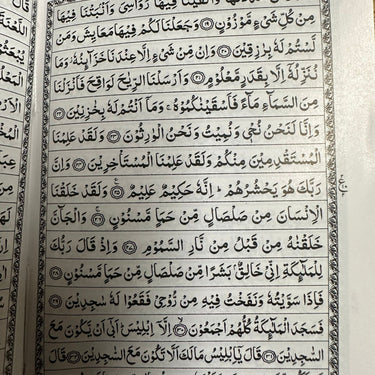 وَاَلْقَيْنَا فِيْهَا رَوَاسِيَ وَاَنْۢبَتْنَا فِيْهَا
مِنْ كُلِّ شَيْءٍ مَّوْزُوْنٍ ﴿١٩﴾ وَجَعَلْنَا لَكُمْ فِيْهَا مَعَايِشَ وَمَنْ
لَّسْتُمْ لَهٗ بِرٰزِقِيْنَ ﴿٢٠﴾ وَاِنْ مِّنْ شَيْءٍ اِلَّا عِنْدَنَا خَزَآئِنُهٗ وَمَا
نُنَزِّلُهٗٓ اِلَّا بِقَدَرٍ مَّعْلُوْمٍ ﴿٢١﴾ وَاَرْسَلْنَا الرِّيٰحَ لَوَاقِحَ فَاَنْزَلْنَا
مِنَ السَّمَآءِ مَآءً فَاَسْقَيْنٰكُمُوْهُ ۚ وَمَآ اَنْتُمْ لَهٗ بِخٰزِنِيْنَ ﴿٢٢﴾
وَاِنَّا لَنَحْنُ نُحْيٖ وَنُمِيْتُ وَنَحْنُ الْوٰرِثُوْنَ ﴿٢٣﴾ وَلَقَدْ عَلِمْنَا
الْمُسْتَقْدِمِيْنَ مِنْكُمْ وَلَقَدْ عَلِمْنَا الْمُسْتَاْخِرِيْنَ ﴿٢٤﴾ وَاِنَّ
رَبَّكَ هُوَ يَحْشُرُهُمْ ؕ اِنَّهٗ حَكِيْمٌ عَلِيْمٌ ﴿٢٥﴾ وَلَقَدْ خَلَقْنَا
الْاِنْسَانَ مِنْ صَلْصَالٍ مِّنْ حَمَاٍ مَّسْنُوْنٍ ﴿٢٦﴾ وَالْجَآنَّ
خَلَقْنٰهُ مِنْ قَبْلُ مِنْ نَّارِ السَّمُوْمِ ﴿٢٧﴾ وَاِذْ قَالَ رَبُّكَ
لِلْمَلٰٓئِكَةِ اِنِّيْ خَالِقٌۢ بَشَرًا مِّنْ صَلْصَالٍ مِّنْ حَمَاٍ مَّسْنُوْنٍ ﴿٢٨﴾
فَاِذَا سَوَّيْتُهٗ وَنَفَخْتُ فِيْهِ مِنْ رُّوْحِيْ فَقَعُوْا لَهٗ سٰجِدِيْنَ ﴿٢٩﴾
فَسَجَدَ الْمَلٰٓئِكَةُ كُلُّهُمْ اَجْمَعُوْنَ ﴿٣٠﴾ اِلَّآ اِبْلِيْسَ ؕ اَبٰٓى اَنْ يَّكُوْنَ مَعَ
السّٰجِدِيْنَ ﴿٣١﴾ قَالَ يٰٓاِبْلِيْسُ مَا لَكَ اَلَّا تَكُوْنَ مَعَ السّٰجِدِيْنَ ﴿٣٢﴾ قَالَ